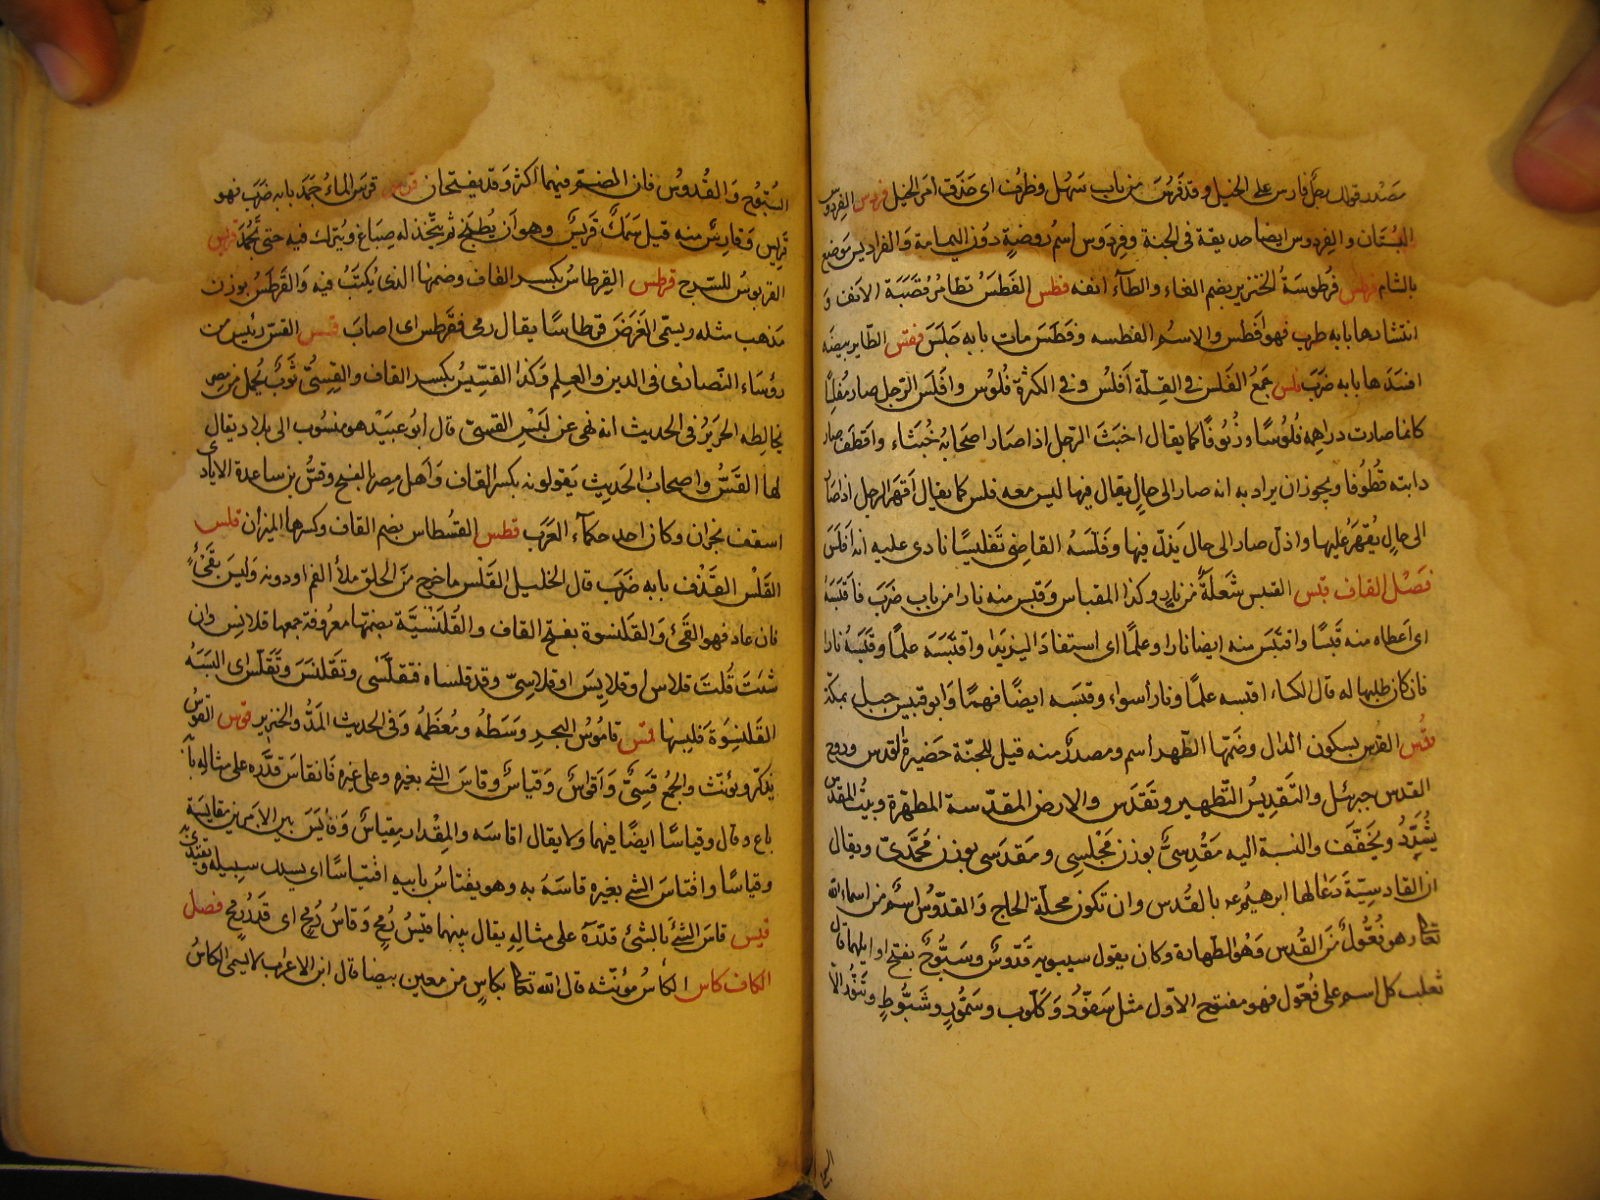 مصدر قولك رجل فارس على الخيل وقد فرس من باب سهل وظرف اى حذق امر الخيل فردوس الفردوس
البستان والفردوس ايضا حديقة فى الجنة وفردوس اسم روضة دون اليمامة والفراديس موضع
بالشام فرطس فرطوسة الخنزير بضم الفاء والطاء انفه فطس الفطس تطامن قصبة الانف و
انتشارها بابه طرب فهو افطس والاسم الفطسه وفطس مات بابه جلس فقس الطاير بيضه
افسدها بابه ضرب فلس جمع الفلس فى القلة افلس وفى الكثرة فلوس وافلس الرجل صار مفلسا
كانما صارت دراهمه فلوسا وزيوفا كما يقال اخبث الرجل اذا صار اصحابه خبثاء واقطف صار
دابته قطوفا ويجوز ان يراد به انه صار الى حال يقال فيها ليس معه فلس كما يقال اقهر الرجل اذا صار
الى حال يقهر عليها واذل صار الى حال يذل فيها وفلسه القاضى تفليسا نادى عليه انه افلس
فصل القاف قبس القبس شعلة من نار وكذا المقباس وقبس منه نارا من باب ضرب فاقبسه
اى اعطاه منه قبسا واقتبس منه ايضا نارا وعلما اى استفاد اليزيدى واقتبسه علما وقبسه نارا
فان كان طلبها له قال الكساء اقبسه علما ونارا سواء وقبسه ايضا فهما وابو قبيس جبل بمكة
قدس القدس بسكون الدال وضمها الطهر اسم ومصدر منه قيل للجنة حضيرة القدس وروح
القدس جبرئل والتقديس التطهير وتقدس والارض المقدسة المطهرة وبيت المقدس
يشدد ويخفف والنسبة اليه مقدسى بوزن مجلسى ومقدسى بوزن محمدى ويقال
ان القادسية دعا لها ابرهيم عم بالقدس وان تكون محلة الحاج والقدوس اسم من اسماء الله
تعالى وهو فعول من القدس وهو الطهارة وكان يقول سيبويه قدوس وسبوح بفتح اوايلهما قال
ثعلب كل اسم على فعول فهو مفتوح الاول مثل سفود وكلوب وسمور وشبوط وتنور الا
السبوح والقدوس فان الضم فيهما اكثر وقد يفتحان قرس قرس الماء جمد بابه ضرب فهو
قريس وقارس منه قيل سمك قريس وهو ان يطبخ ثم يتخذ له صباغ ويترك فيه حتى يجمد قربس
القربوس للسرج قرطس القرطاس بكسر القاف وضمها الذى يكتب فيه والقرطس بوزن
مذهب مثله ويسمى الغرض قرطاسا يقال رمى فقرطس اى اصاب قسس القس رئيس من
رؤساء النصارى فى الدين والعلم وكذا القسيس بكسر القاف والقسى ثوب يحمل من مصر
يخالطه الحرير وفى الحديث انه نهى عن لبس القسى قال ابو عبيد هو منسوب الى بلاد يقال
لها القس واصحاب الحديث يقولونه بكسر القاف واهل مصر بالفتح وقس بن ساعدة الايادى
اسقف نجران وكان احد حكماء العرب قسطس القسطاس بضم القاف وكسرها الميزان قلس
القلس القذف بابه ضرب قال الخليل القلس ما خرج من الحلق ملأ الفم او دونه وليس بقئ
فان عاد فهو القئ والقلنسوة بفتح القاف والقلنسية بضمها معروفة جمعها قلانس وان
شئت قلت قلاس او قلانيس او قلاسى وقد قلساه فتقلسى وتقلنس وتقلس اى البسه
القلنسوة فلبسها قمس قاموس البحر وسطه ومعظمه وفى الحديث المد والجزر قوس القوس
يذكر ويؤنث والجمع قسى واقواس وقياس وقاس الشئ بغيره وعلى غيره فانقاس قدره على مثاله بابه
باع وقال وقياسا ايضا فيهما ولا يقال اقاسه والمقدار مقياس وقايس بين الامرين مقايسة
وقياسا واقتاس الشئ بغيره قاسه به وهو يقتاس بابيه اقتياسا اى يسلك سبيله ويقتدى به
قيس قاس الشئ بالشئ قدره على مثاله يقال بينهما قيس رمح وقاس رمح اى قدر رمح فصل
الكاف كاس الكأس مؤنثه قال الله تعالى بكاس من معين بيضا قال ابن الاعرابى لا تسمى الكاس